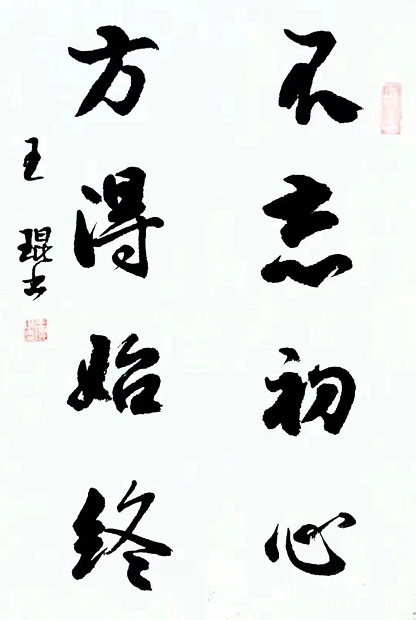 不忘初心
方得始终
王琨书